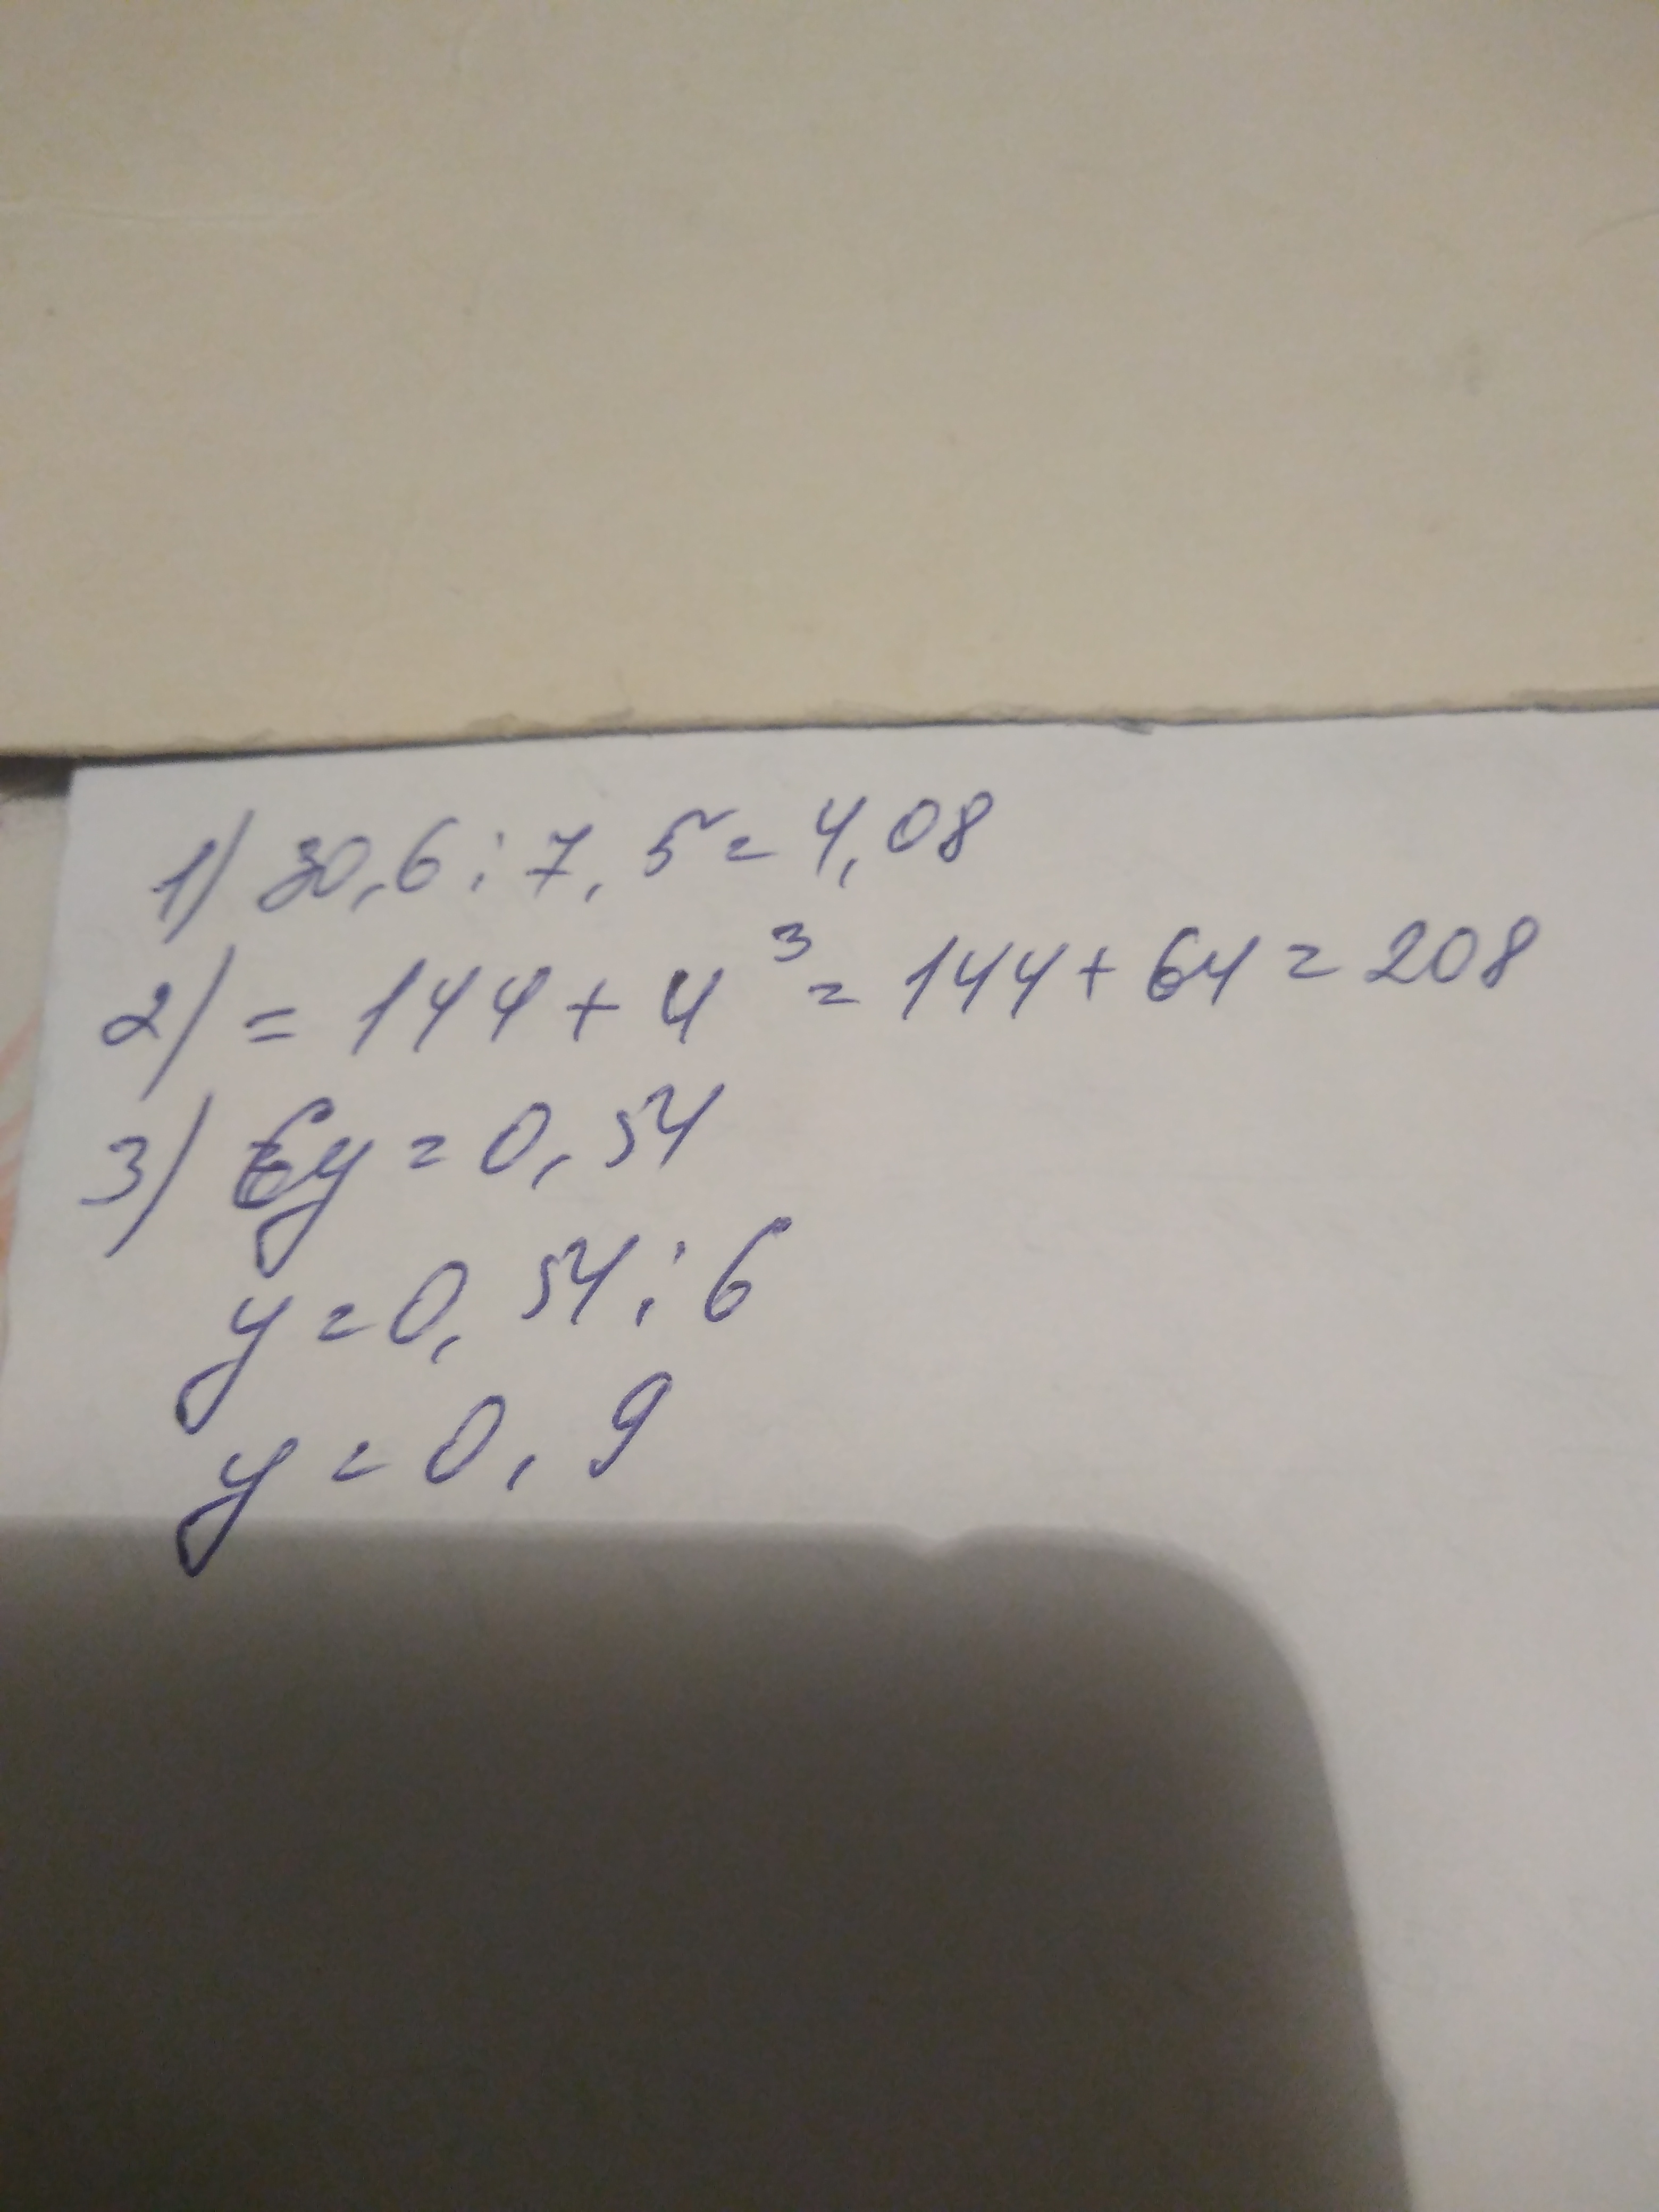 1) 30,6 : 7,5 = 4,08
2) = 144 + 4³ = 144 + 64 = 208
3) 6y = 0,54
y = 0,54 : 6
y = 0,9